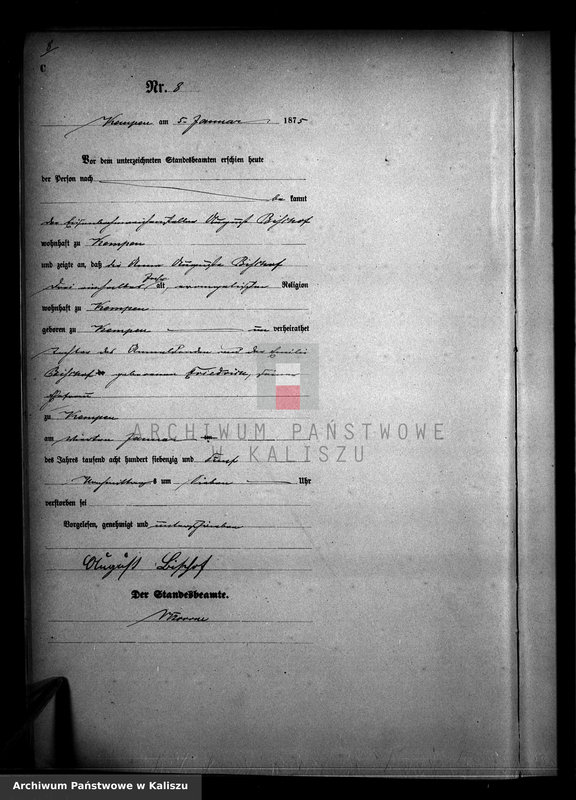 8
C
Nr. 8
Kempen am 5. Januar 1875
Vor dem unterzeichneten Standesbeamten erschien heute
der Person nach
be kannt
der August Bischof
wohnhaft zu Kempen
und zeigte an, daß die Anna Auguste Bischof
Jahr
drei alt, evangelischer Religion
wohnhaft zu Kempen
geboren zu Kempen un verheirathet
Tochter des Anmeldenden und der Emilie
Bischof geborenen Friedrich, seiner
Ehefrau
zu Kempen
am vierten Januar
des Jahres tausend acht hundert siebenzig und fünf
Nachmittags um sieben Uhr
verstorben sei
Vorgelesen, genehmigt und unterschrieben
August Bischof
Der Standesbeamte.
ARCHIWUM PAŃSTWOWE
W KALISZU
Archiwum Państwowe w Kaliszu